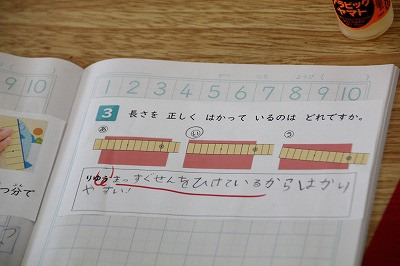 ラビック
ヤマト
8 9 10
1 2 3 4 5 6 7 8 9 10
3 長さを 正しく はかって いるのは どれですか。
あ い う
つ分で
りゆう まっすぐせんをひけているからはかり
やすい!